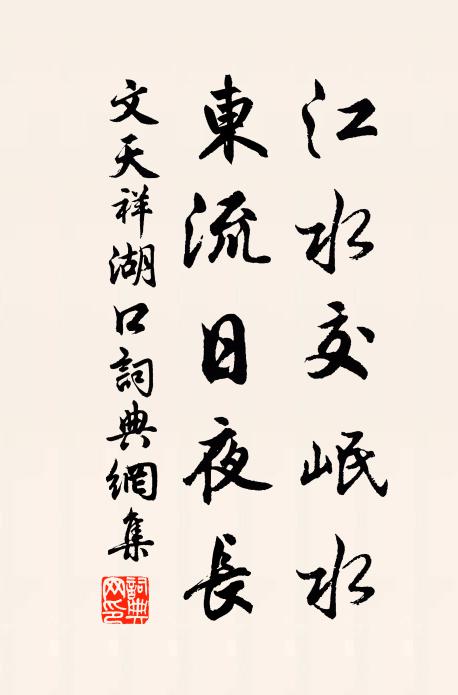 江水交岷水
東流日夜長
文天祥湖口詞典網集
詞典網印